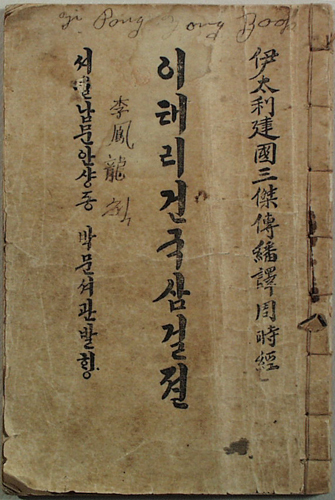 Yi Pong Yong Book
伊太利建國三傑傳繙譯周時經
이태리건국삼걸젼
李鳳龍
서울남문안샹동 박문셔관발ᄒᆡᆼ